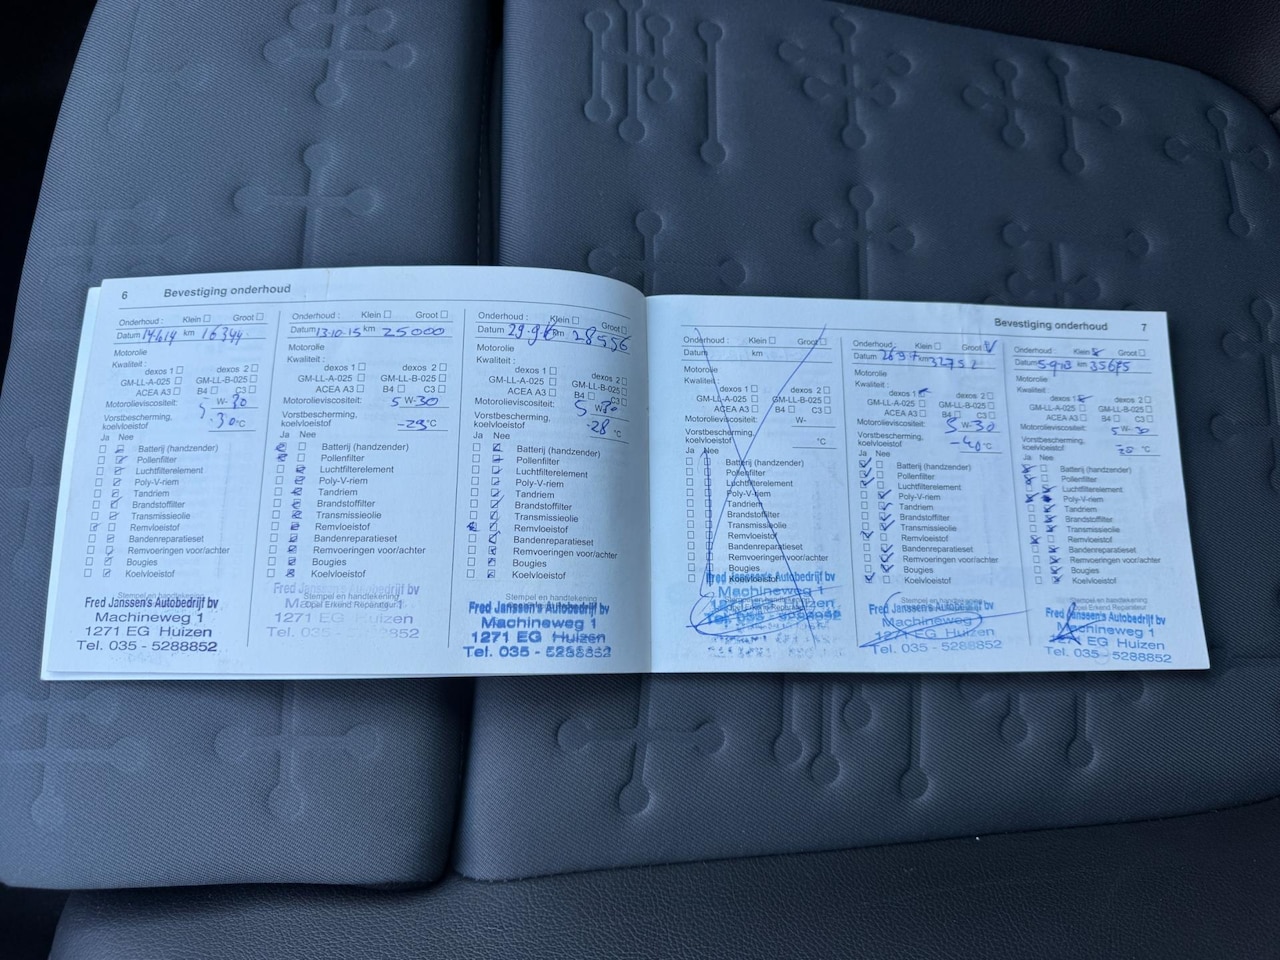 6 Bevestiging onderhoud
Onderhoud : Klein Groot
Datum km 16344
Motorolie
Kwaliteit :
dexos 1 dexos 2
GM-LL-A-025 GM-LL-B-025
ACEA A3 B4 C3
Motorolieviscositeit: 5 W- 30
Vorstbescherming, koelvloeistof -30 °C
Ja Nee
Batterij (handzender)
Pollenfilter
Luchtfilterelement
Poly-V-riem
Tandriem
Brandstoffilter
Transmissieolie
Remvloeistof
Bandenreparatieset
Remvoeringen voor/achter
Bougies
Koelvloeistof
Stempel en handtekening
Fred Janssen's Autobedrijf bv
Machineweg 1
1271 EG Huizen
Tel. 035 - 5288852
Onderhoud : Klein Groot
Datum 13-10-15 km 25000
Motorolie
Kwaliteit :
dexos 1 dexos 2
GM-LL-A-025 GM-LL-B-025
ACEA A3 B4 C3
Motorolieviscositeit: 5 W-30
Vorstbescherming, koelvloeistof -29 °C
Ja Nee
Batterij (handzender)
Pollenfilter
Luchtfilterelement
Poly-V-riem
Tandriem
Brandstoffilter
Transmissieolie
Remvloeistof
Bandenreparatieset
Remvoeringen voor/achter
Bougies
Koelvloeistof
Stempel en handtekening
Opel Erkend Reparateur
Fred Janssen's Autobedrijf bv
1271 EG Huizen
Tel. 035 - 5288852
Onderhoud : Klein Groot
Datum km 28556
Motorolie
Kwaliteit :
dexos 1 dexos 2
GM-LL-A-025 GM-LL-B-025
ACEA A3 B4 C3
Motorolieviscositeit: 5 W-30
Vorstbescherming, koelvloeistof -28 °C
Ja Nee
Batterij (handzender)
Pollenfilter
Luchtfilterelement
Poly-V-riem
Tandriem
Brandstoffilter
Transmissieolie
Remvloeistof
Bandenreparatieset
Remvoeringen voor/achter
Bougies
Koelvloeistof
Stempel en handtekening
Fred Janssen's Autobedrijf bv
Machineweg 1
1271 EG Huizen
Tel. 035 - 5288852
Bevestiging onderhoud 7
Onderhoud : Klein Groot
Datum km
Motorolie
Kwaliteit :
dexos 1 dexos 2
GM-LL-A-025 GM-LL-B-025
ACEA A3 B4 C3
Motorolieviscositeit: W-
Vorstbescherming, koelvloeistof °C
Ja Nee
Batterij (handzender)
Pollenfilter
Luchtfilterelement
Poly-V-riem
Tandriem
Brandstoffilter
Transmissieolie
Remvloeistof
Bandenreparatieset
Remvoeringen voor/achter
Bougies
Koelvloeistof
Fred Janssen's Autobedrijf bv
Machineweg 1
1271 EG Huizen
Tel. 035 - 5288852
Onderhoud : Klein Groot
Datum km 32752
Motorolie
Kwaliteit :
dexos 1 dexos 2
GM-LL-A-025 GM-LL-B-025
ACEA A3 B4 C3
Motorolieviscositeit: 5 W-30
Vorstbescherming, koelvloeistof -40 °C
Ja Nee
Batterij (handzender)
Pollenfilter
Luchtfilterelement
Poly-V-riem
Tandriem
Brandstoffilter
Transmissieolie
Remvloeistof
Bandenreparatieset
Remvoeringen voor/achter
Bougies
Koelvloeistof
Fred Janssen's Autobedrijf bv
Machineweg 1
1271 EG Huizen
Tel. 035 - 5288852
Onderhoud : Klein Groot
Datum km 35675
Motorolie
Kwaliteit :
dexos 1 dexos 2
GM-LL-A-025 GM-LL-B-025
ACEA A3 B4 C3
Motorolieviscositeit: 5 W-30
Vorstbescherming, koelvloeistof °C
Ja Nee
Batterij (handzender)
Pollenfilter
Luchtfilterelement
Poly-V-riem
Tandriem
Brandstoffilter
Transmissieolie
Remvloeistof
Bandenreparatieset
Remvoeringen voor/achter
Bougies
Koelvloeistof
Stempel en handtekening
Opel Erkend Reparateur
Fred Janssen's Autobedrijf bv
Machineweg 1
EG Huizen
Tel. 035 - 5288852